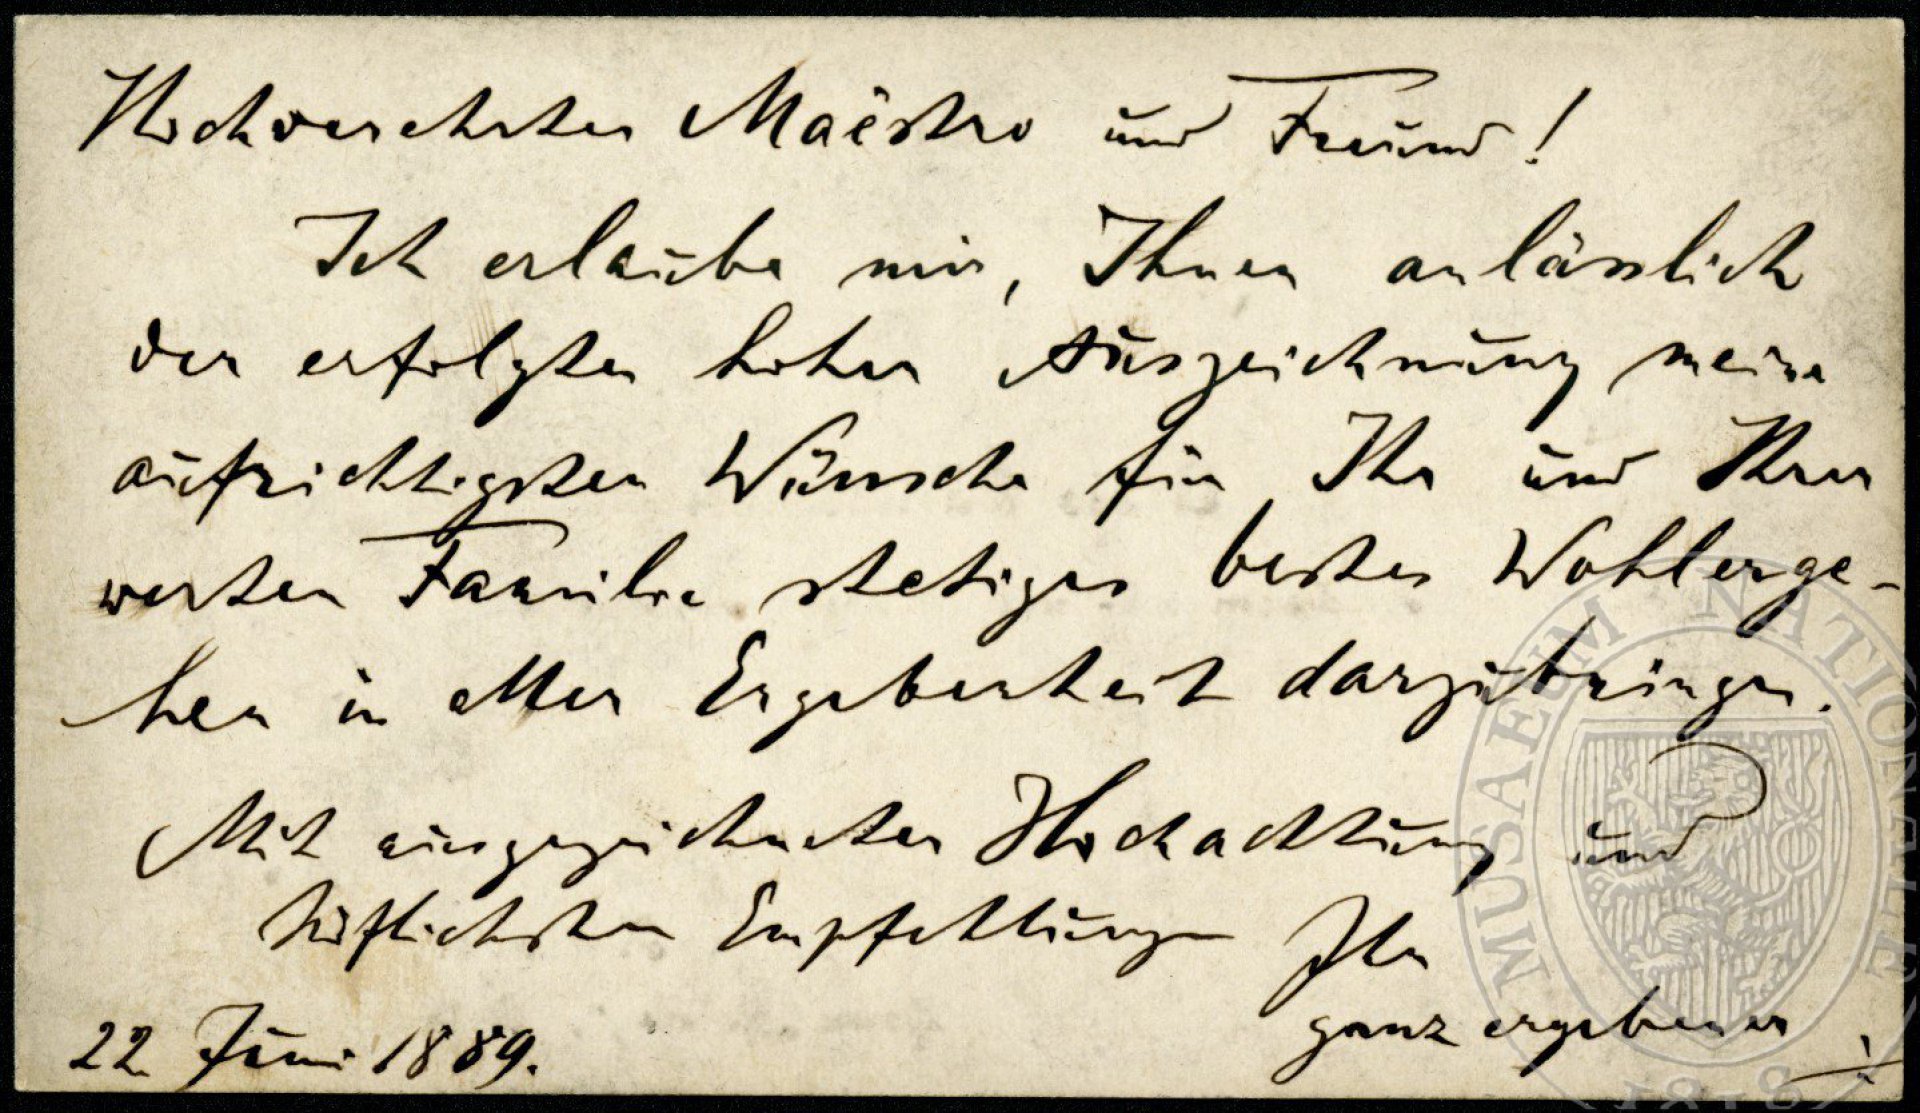 Hochverehrter Maëstro und Freund!
Ich erlaube mir, Ihnen anlässlich
der erfolgten hohen Auszeichnung meine
aufrichtigsten Wünsche für Ihr und Ihrer
werten Familie stetiges bestes Wohlerge-
hen in aller Ergebenheit darzubringen.
Mit ausgezeichneter Hochachtung und
höflichsten Empfehlungen Ihr
22 Juni 1889. ganz ergebener
MUSAEUM NATIONALE
1818